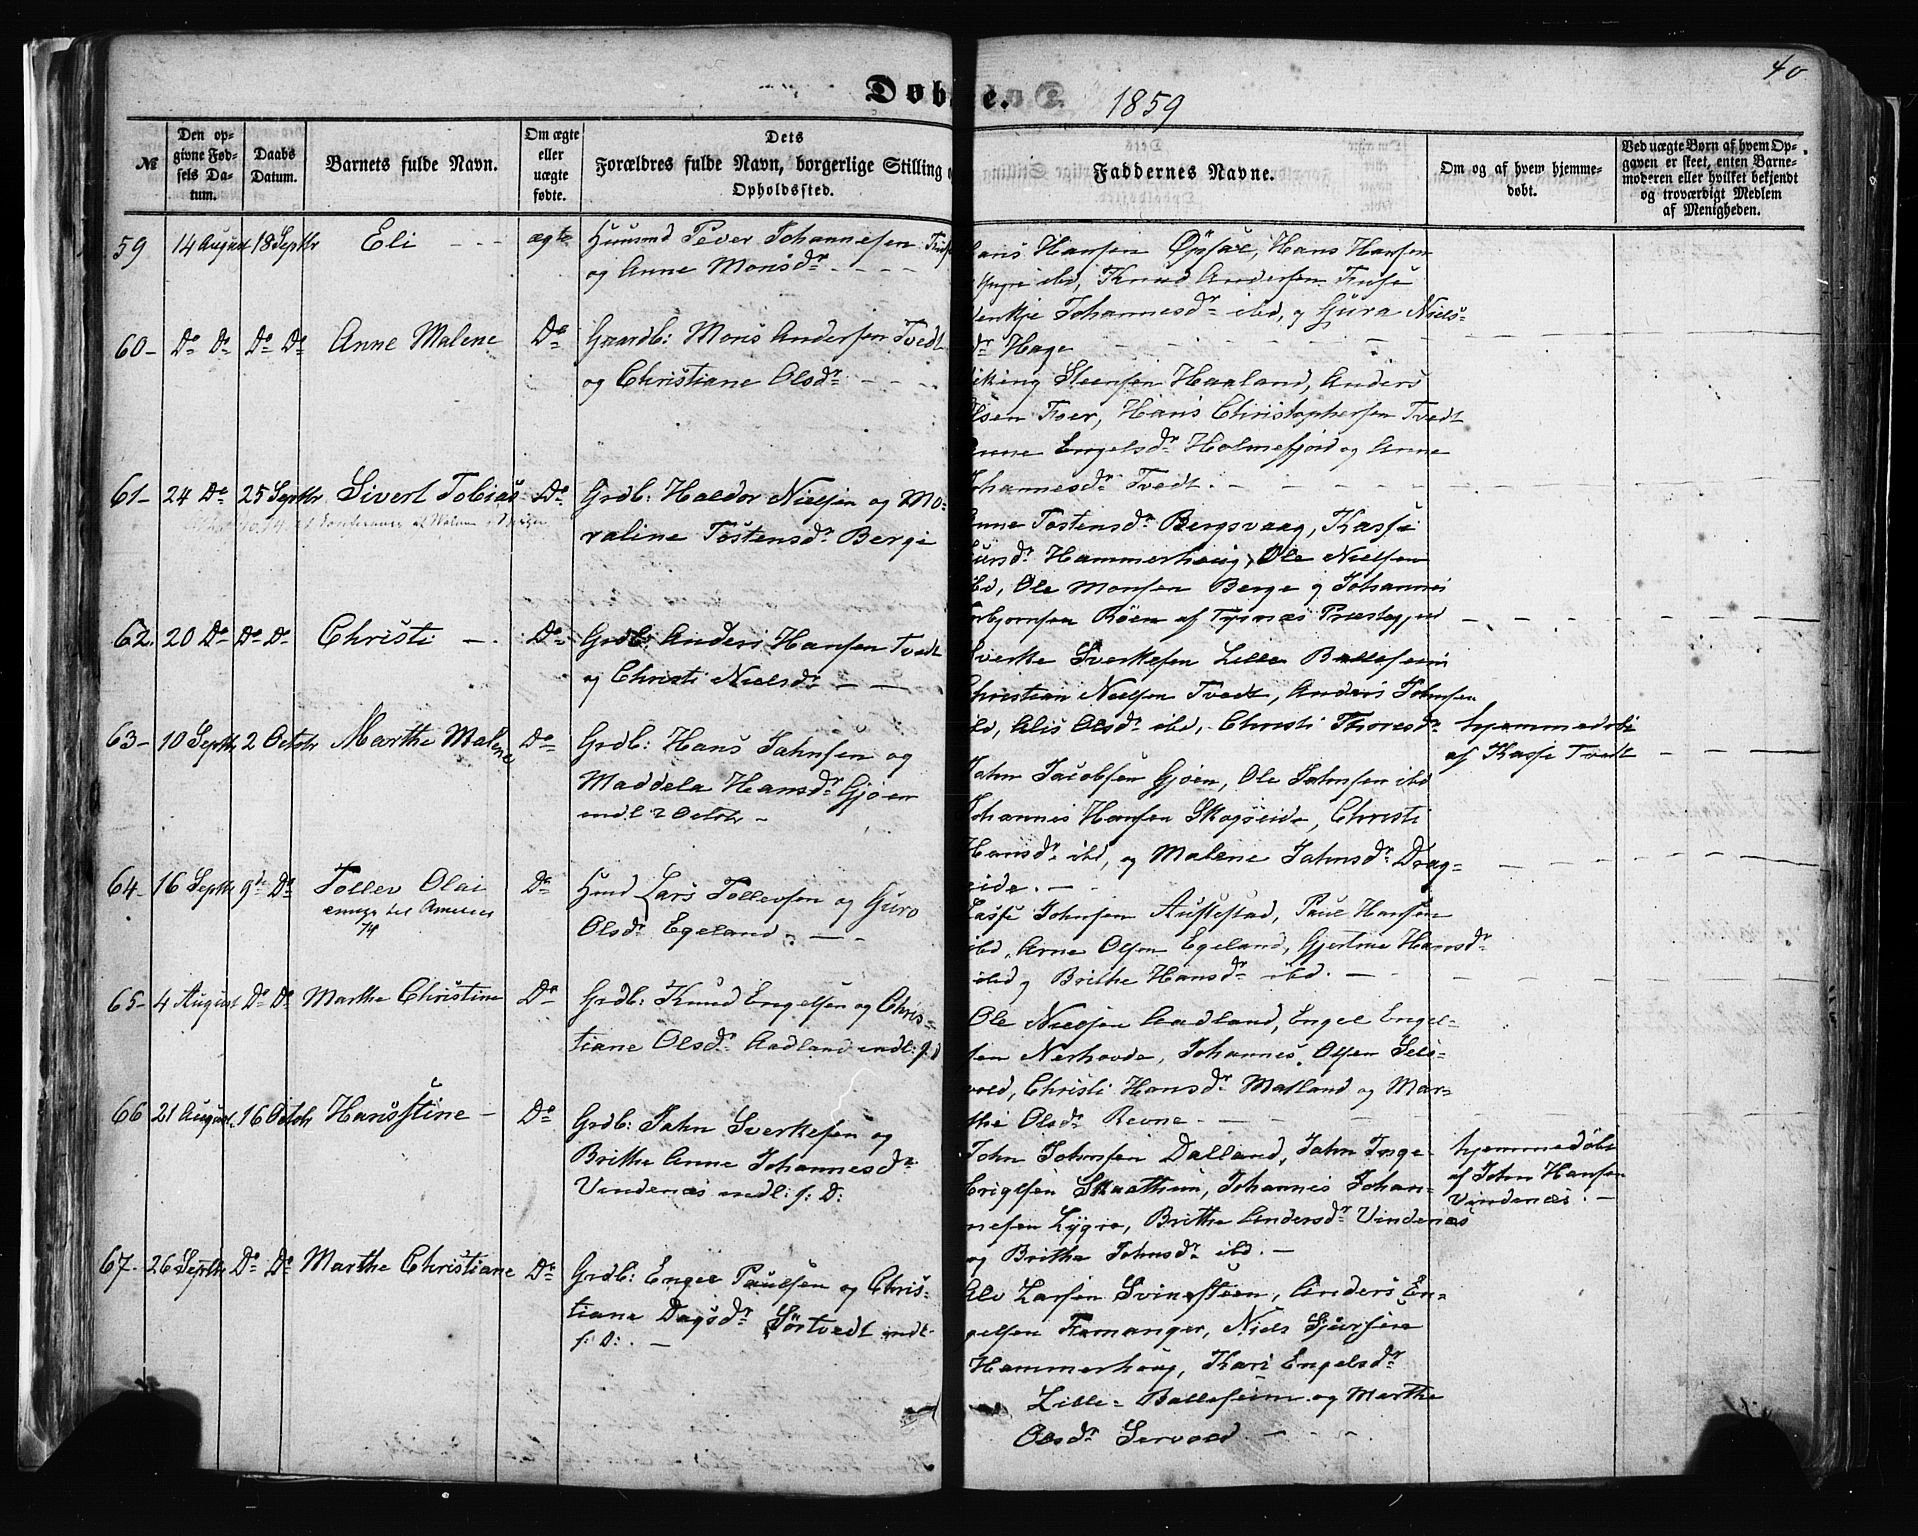 Døb e.
1859
40
№
Den op-
givne Fød-
sels Da-
tum.
Daabs
Datum.
Barnets fulde Navn.
Om ægte
eller
uægte
fødte.
Dets
Forældres fulde Navn, borgerlige Stilling o
Opholdssted.
Faddernes Navne.
Om og af hvem hjemme-
døbt.
Ved uægte Børn af hvem Op-
gaven er skeet, enten Barne-
moderen eller hvilket bekjendt
og troværdigt Medlem
af Menigheden.
59 14 August 18 Septbr Eli - - - ægte Huusmd Peder Johannesen
og Anne Monsdr
ans Hansen Øpsal, Hans Hansen
Yngre ibd, Knud Andersen Fuse
Johannesdr ibd, og Gura Niels-
dr Hage
60 - Do Do Do Do Anne Malene Do Gaardb: Mons Andersen Tvedt
og Christiane Olsdr
iking Steensen Haaland, Anders
lsen Foer, Hans Christophersen Tvedt
nne Engelsdr Holmefjord og Anne
Johannesdr Tvedt.
61 - 24 Do 25 Septbr Sivert Tobias Do Grdb: Haldor Nielsen og Mo-
raline Tostensdr Berge
nne Tostensdr Bergsvaag, Kasse
dr Hammerhoug, Ole Nielsen
ibd, Ole Monsen Berge og Johannes
orbjørnsen Røen af Tysnæs Præstegjeld
62. 20 Do Do Do Christi - Do Grdb: Anders Hansen Tvedt
og Christi Nielsdr - -
Sverke Sverkesen Lille Balleseim
Christian Nielsen Tvedt, Anders Johnsen
ibd, Alis Olsdr ibd, Christi Thoresdr
hjemmedøbt
af Kasse Tvedt
63 - 10 Septbr 2 Octobr Marthe Malene Do Grdb: Hans Jahnsen og
Maddela Hansdr Gjøen
indl 2 Octobr -
Jahn Jacobsen Gjøen, Ole Jahnsen ibd
Johannes Hansen Skogseide, Christi
Hansdr ibd, og Malene Jahnsdr Drag-
eide. -
64 - 16 Septbr 9de Do Tollev Olai Do Hmd Lars Tollevsen og Guro
Olsdr Egeland. -
74
Lasse Johnsen Austestad, Paul Hansen
ibd, Arne Olsen Egeland, Gjertine Hansdr
ibd og Brithe Hansdr ibd. -
65 - 4 August Do Do Marthe Christine Do Grdb: Knud Engelsen og Chris-
tiane Olsdr Aadland indl: f: d
Ole Nielsen Aadland, Engel Engel-
sen Nerhovde, Johannes Olsen Sels-
vold, Christi Hansdr Matland og Mar-
the Olsdr Revne - -
66 21 August 16 Octobr Hansstine - Do Grdb: Jahn Sverkesen og
Brithe Anne Johannesdr
Vindenæs indl: f: D:
John Johnsen Dalland, Jahn Inge-
Erigelsen Skaathun, Johannes Johan-
nesen Lygre, Brithe Andersdr Vindenæs
og Britha Johnsdr ibd. -
hjemmedøbt
af John Hansen
Vindenæs. -
67 - 26 Septbr Do Do Marthe Christiane Do Grdb: Engel Paulsen og Chris-
tiane Dagsdr Sørtvedt indl
f: D: . -
Larsen Svinesteen, Anders En-
gelsen Femanger, Niels Sjursen
Hammerhoug, Kari Engelsdr
Lille - Balleseim og Marthe
Olsdr